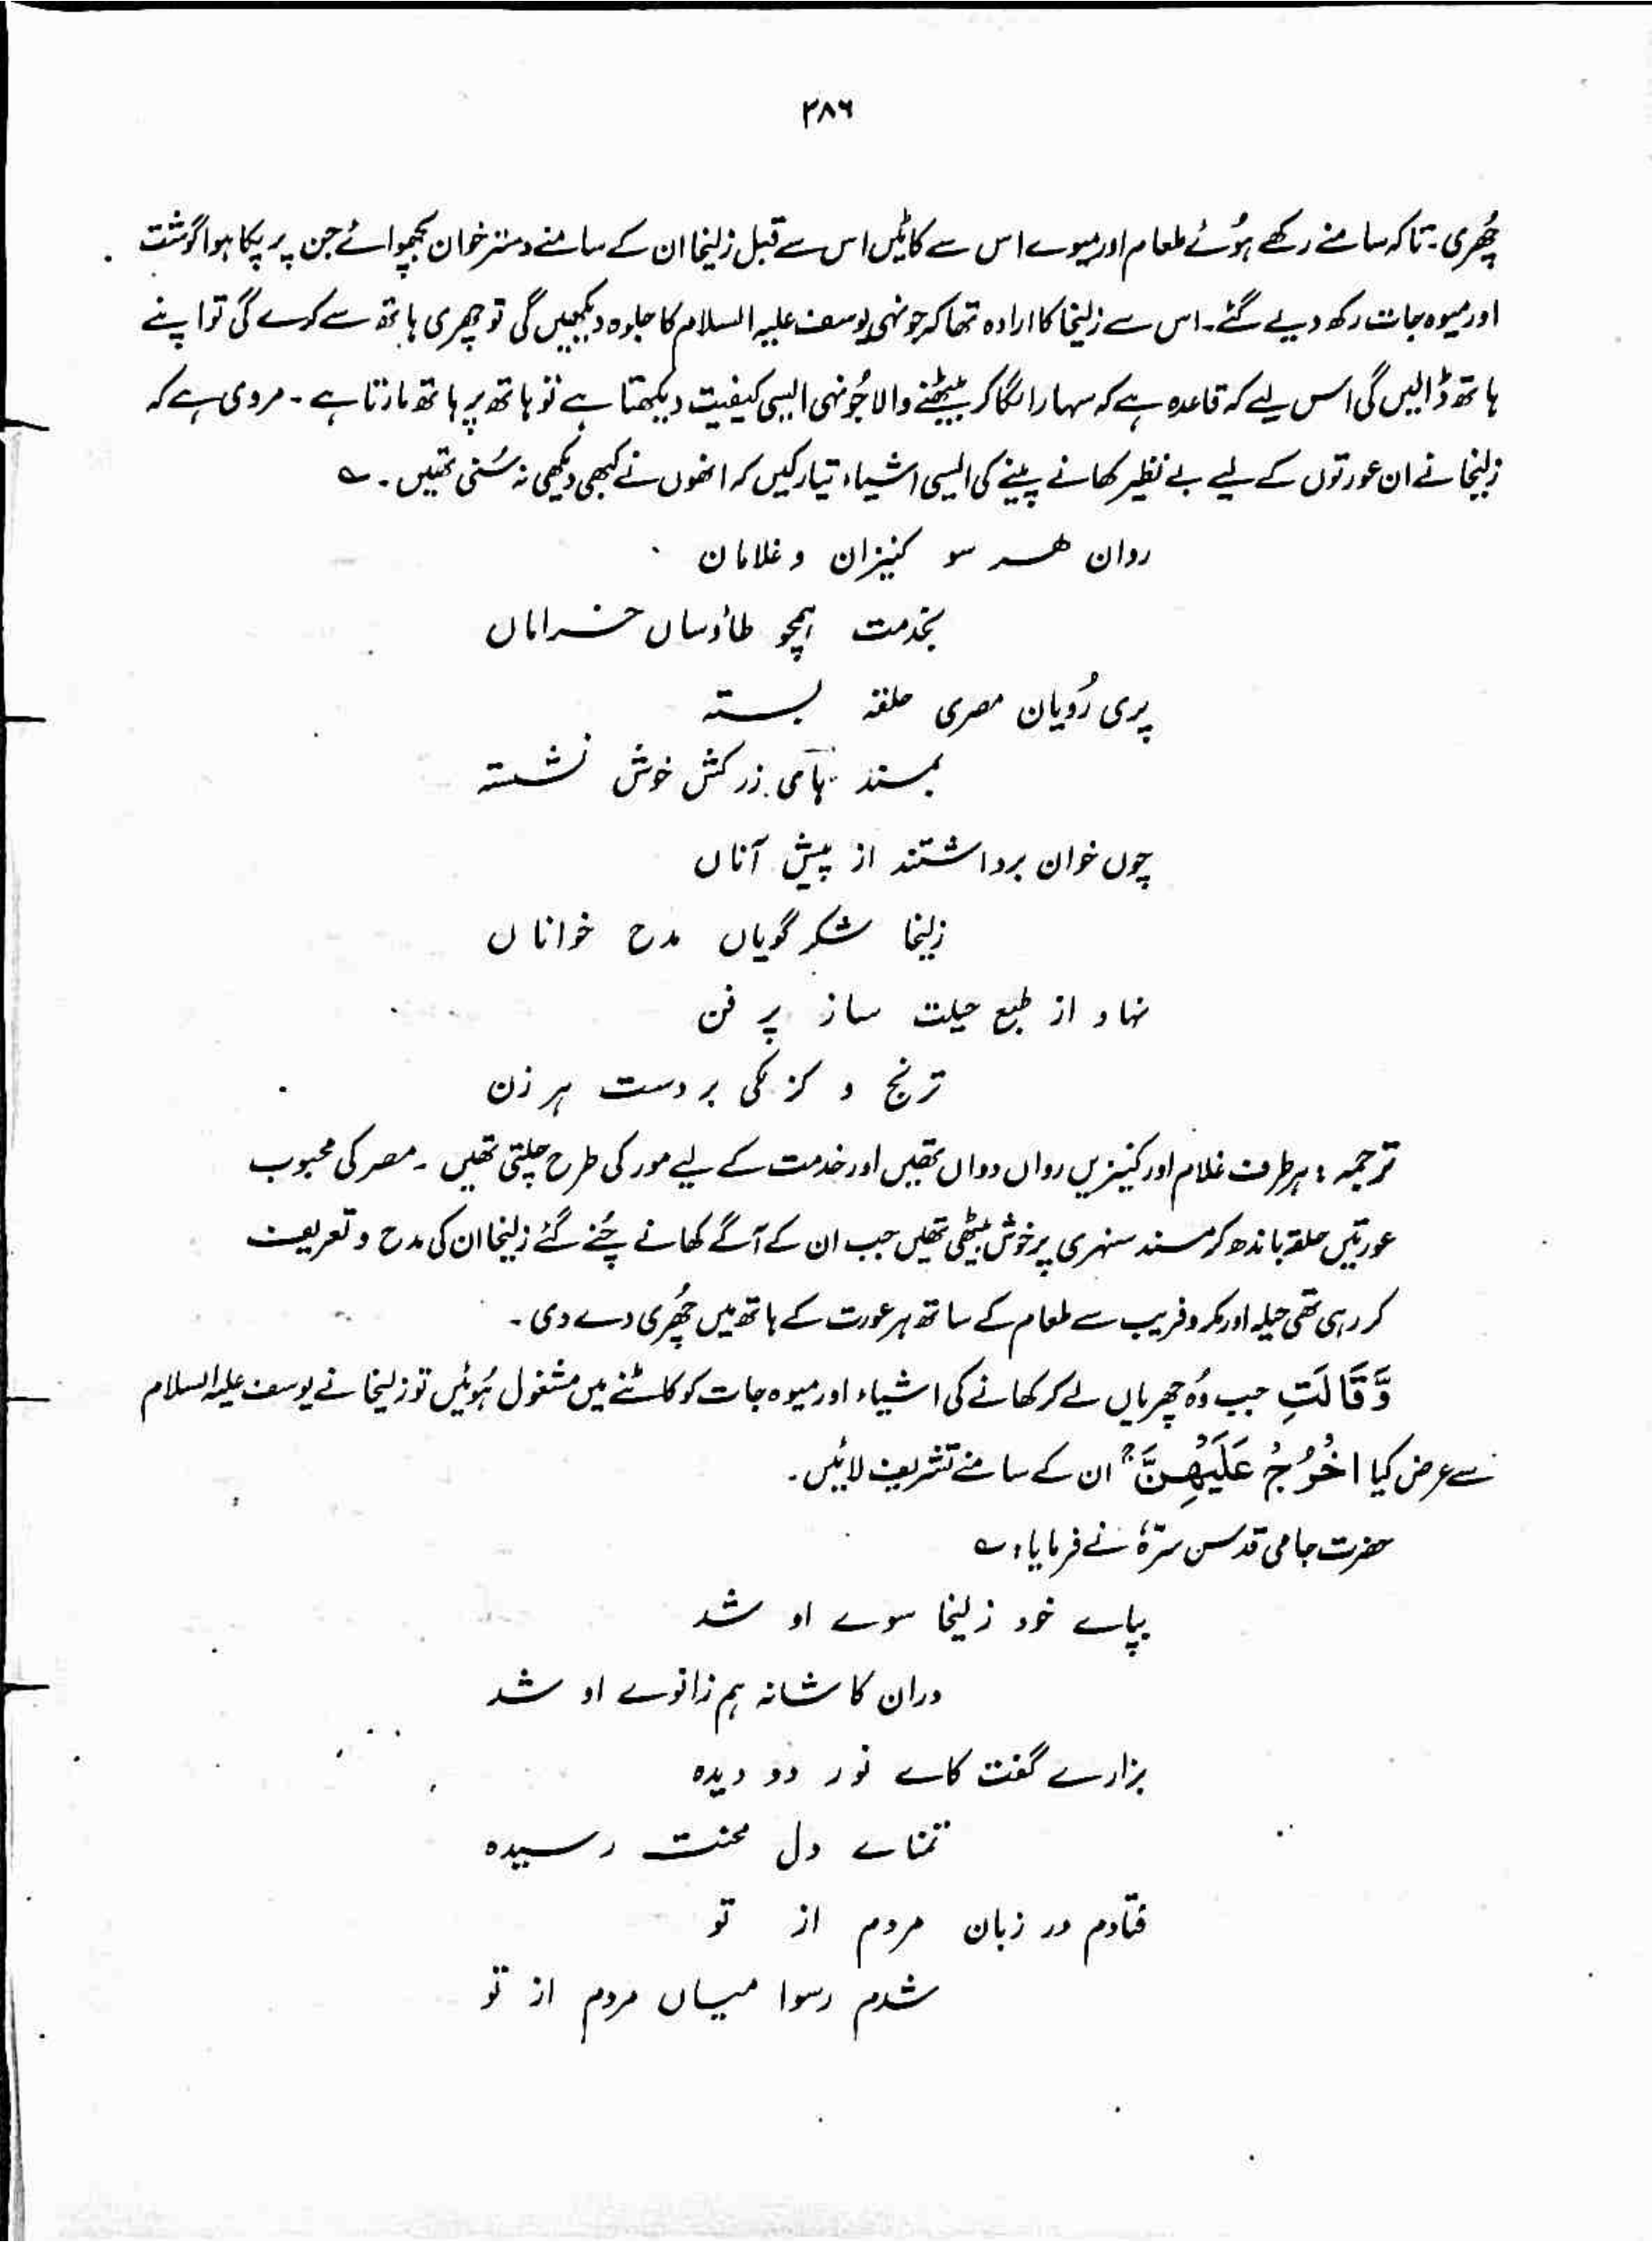 ۳۸۶
چُھری۔ تاکہ سامنے رکھے ہُوئے طعام اور میوے اس سے کاٹیں اس سے قبل زلیخا ان کے سامنے دسترخوان بچھوائے جن پر پکا ہوا گوشت
اور میوہ جات رکھ دیے گئے۔ اس سے زلیخا کا ارادہ تھا کہ جونہی یوسف علیہ السلام کا جلوہ دیکھیں گی تو چھری ہاتھ سے کرے گی تو اپنے
ہاتھ ڈالیں گی اس لیے کہ قاعدہ ہے کہ سہارا لگا کر بیٹھنے والا جُونہی ایسی کیفیت دیکھتا ہے تو ہاتھ پر ہاتھ مارتا ہے۔ مروی ہے کہ
زلیخا نے ان عورتوں کے لیے بے نظیر کھانے پینے کی ایسی اشیاء تیار کیں کہ انھوں نے کبھی دیکھی نہ سُنی تھیں۔ ؎
روان ھر سو کنیزان و غلامان
بخدمت ہمچو طاؤساں خراماں
پری رُویان مصری حلقہ بستہ
بمسند ہآمی زرکش خوش نشستہ
چوں خوان برداشتند از پیش آناں
زلیخا شکر گویاں مدح خواناں
نہاد از طبع حیلت ساز پر فن
ترنج و کزلکی بر دست ہر زن
ترجمہ : ہر طرف غلام اور کنیزیں رواں دواں تھیں اور خدمت کے لیے مور کی طرح چلتی تھیں۔ مصر کی محبوب
عورتیں حلقہ باندھ کر مسند سنہری پر خوش بیٹھی تھیں جب ان کے آگے کھانے چُنے گئے زلیخا ان کی مدح و تعریف
کر رہی تھی حیلہ اور مکر و فریب سے طعام کے ساتھ ہر عورت کے ہاتھ میں چُھری دے دی۔
وَّقَالَتِ جب وُہ چھریاں لے کر کھانے کی اشیاء اور میوہ جات کو کاٹنے میں مشغول ہُوئیں تو زلیخا نے یوسف علیہ السلام
سے عرض کیا اخْرُجْ عَلَیْھِنَّ ۚ ان کے سامنے تشریف لائیں۔
حضرت جامی قدس سرّہٗ نے فرمایا، ؎
بپاے خود زلیخا سوے او شد
دران کاشانہ ہم زانوے او شد
بزارے گفت کاے نور دو دیدہ
تمناے دل محنت رسیدہ
فتادم در زبان مردم از تو
شدم رسوا میاں مردم از تو